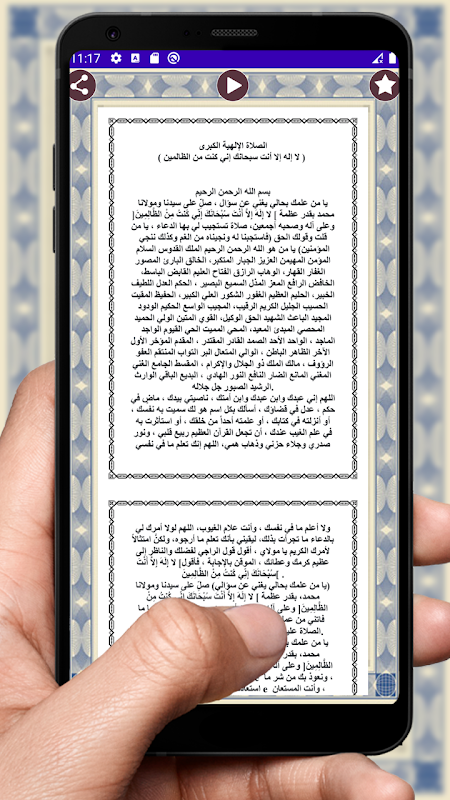 11:17
الصلاة الإلهية الكبرى
( لا إله إلا أنت سبحانك إني كنت من الظالمين )
بسم الله الرحمن الرحيم
يا من علمك بحالي يغني عن سؤال ، صلّ على سيدنا ومولانا
محمد بقدر عظمة [ لا إِلَهَ إِلَّا أَنْتَ سُبْحَانَكَ إِنِّي كُنْتُ مِنَ الظَّالِمِينَ]
وعلى آله وصحبه أجمعين، صلاة تستجيب لي بها الدعاء ، يا من
قلت وقولك الحق (فاستجبنا له ونجيناه من الغم وكذلك ننجي
المؤمنين) يا من هو الله الرحمن الرحيم الملك القدوس السلام
المؤمن المهيمن العزيز الجبار المتكبر، الخالق البارئ المصور
الغفار القهار، الوهاب الرازق الفتاح العليم القابض الباسط،
الخافض الرافع المعز المذل السميع البصير ، الحكم العدل اللطيف
الخبير، الحليم العظيم الغفور الشكور العلي الكبير، الحفيظ المقيت
الحسيب الجليل الكريم الرقيب، المجيب الواسع الحكيم الودود
المجيد الباعث الشهيد الحق الوكيل، القوي المتين الولي الحميد
المحصي المبدئ المعيد، المحي المميت الحي القيوم الواجد
الماجد ، الواحد الأحد الصمد القادر المقتدر ، المقدم المؤخر الأول
الآخر الظاهر الباطن ، الوالي المتعال البر التواب المنتقم العفو
الرؤوف ، مالك الملك ذو الجلال والإكرام ، المقسط الجامع الغني
المغني المانع الضار النافع النور الهادي ، البديع الباقي الوارث
الرشيد الصبور جل جلاله.
اللهم إني عبدك وابن عبدك وابن أمتك ، ناصيتي بيدك ، ماض في
حكم ، عدل في قضاؤك ، أسألك بكل اسم هو لك سميت به نفسك ،
أو أنزلته في كتابك ، أو علمته أحداً من خلقك ، أو استأثرت به
في علم الغيب عندك ، أن تجعل القرآن العظيم ربيع قلبي ، ونور
صدري وجلاء حزني وذهاب همي، اللهم إنك تعلم ما في نفسي
ولا أعلم ما في نفسك ، وأنت علام الغيوب، اللهم لولا أمرك لي
بالدعاء ما تجرأت بذلك، ليقيني بأنك تعلم ما أرجوه، ولكن امتثالاً
لأمرك الكريم يا مولاي ، أقول قول الراجي لفضلك والناظر إلى
عظيم كرمك وعطائك ، الموقن بالإجابة ، فأقول[ لا إِلَهَ إِلَّا أَنْتَ
سُبْحَانَكَ إِنِّي كُنْتُ مِنَ الظَّالِمِينَ] .
(يا من علمك بحالي يغني عن سؤالي) صلّ على سيدنا ومولانا
محمد، بقدر عظمة [ لا إِلَهَ إِلَّا أَنْتَ سُبْحَانَكَ إِنِّي كُنْتُ مِنَ
الظَّالِمِينَ] وعلى
فائني من
الصلاة
يا من علمك
محمد، بقدر
الظَّالِمِينَ] وعلى
، ونعوذ بك من شر ما
، وأنت المستعان